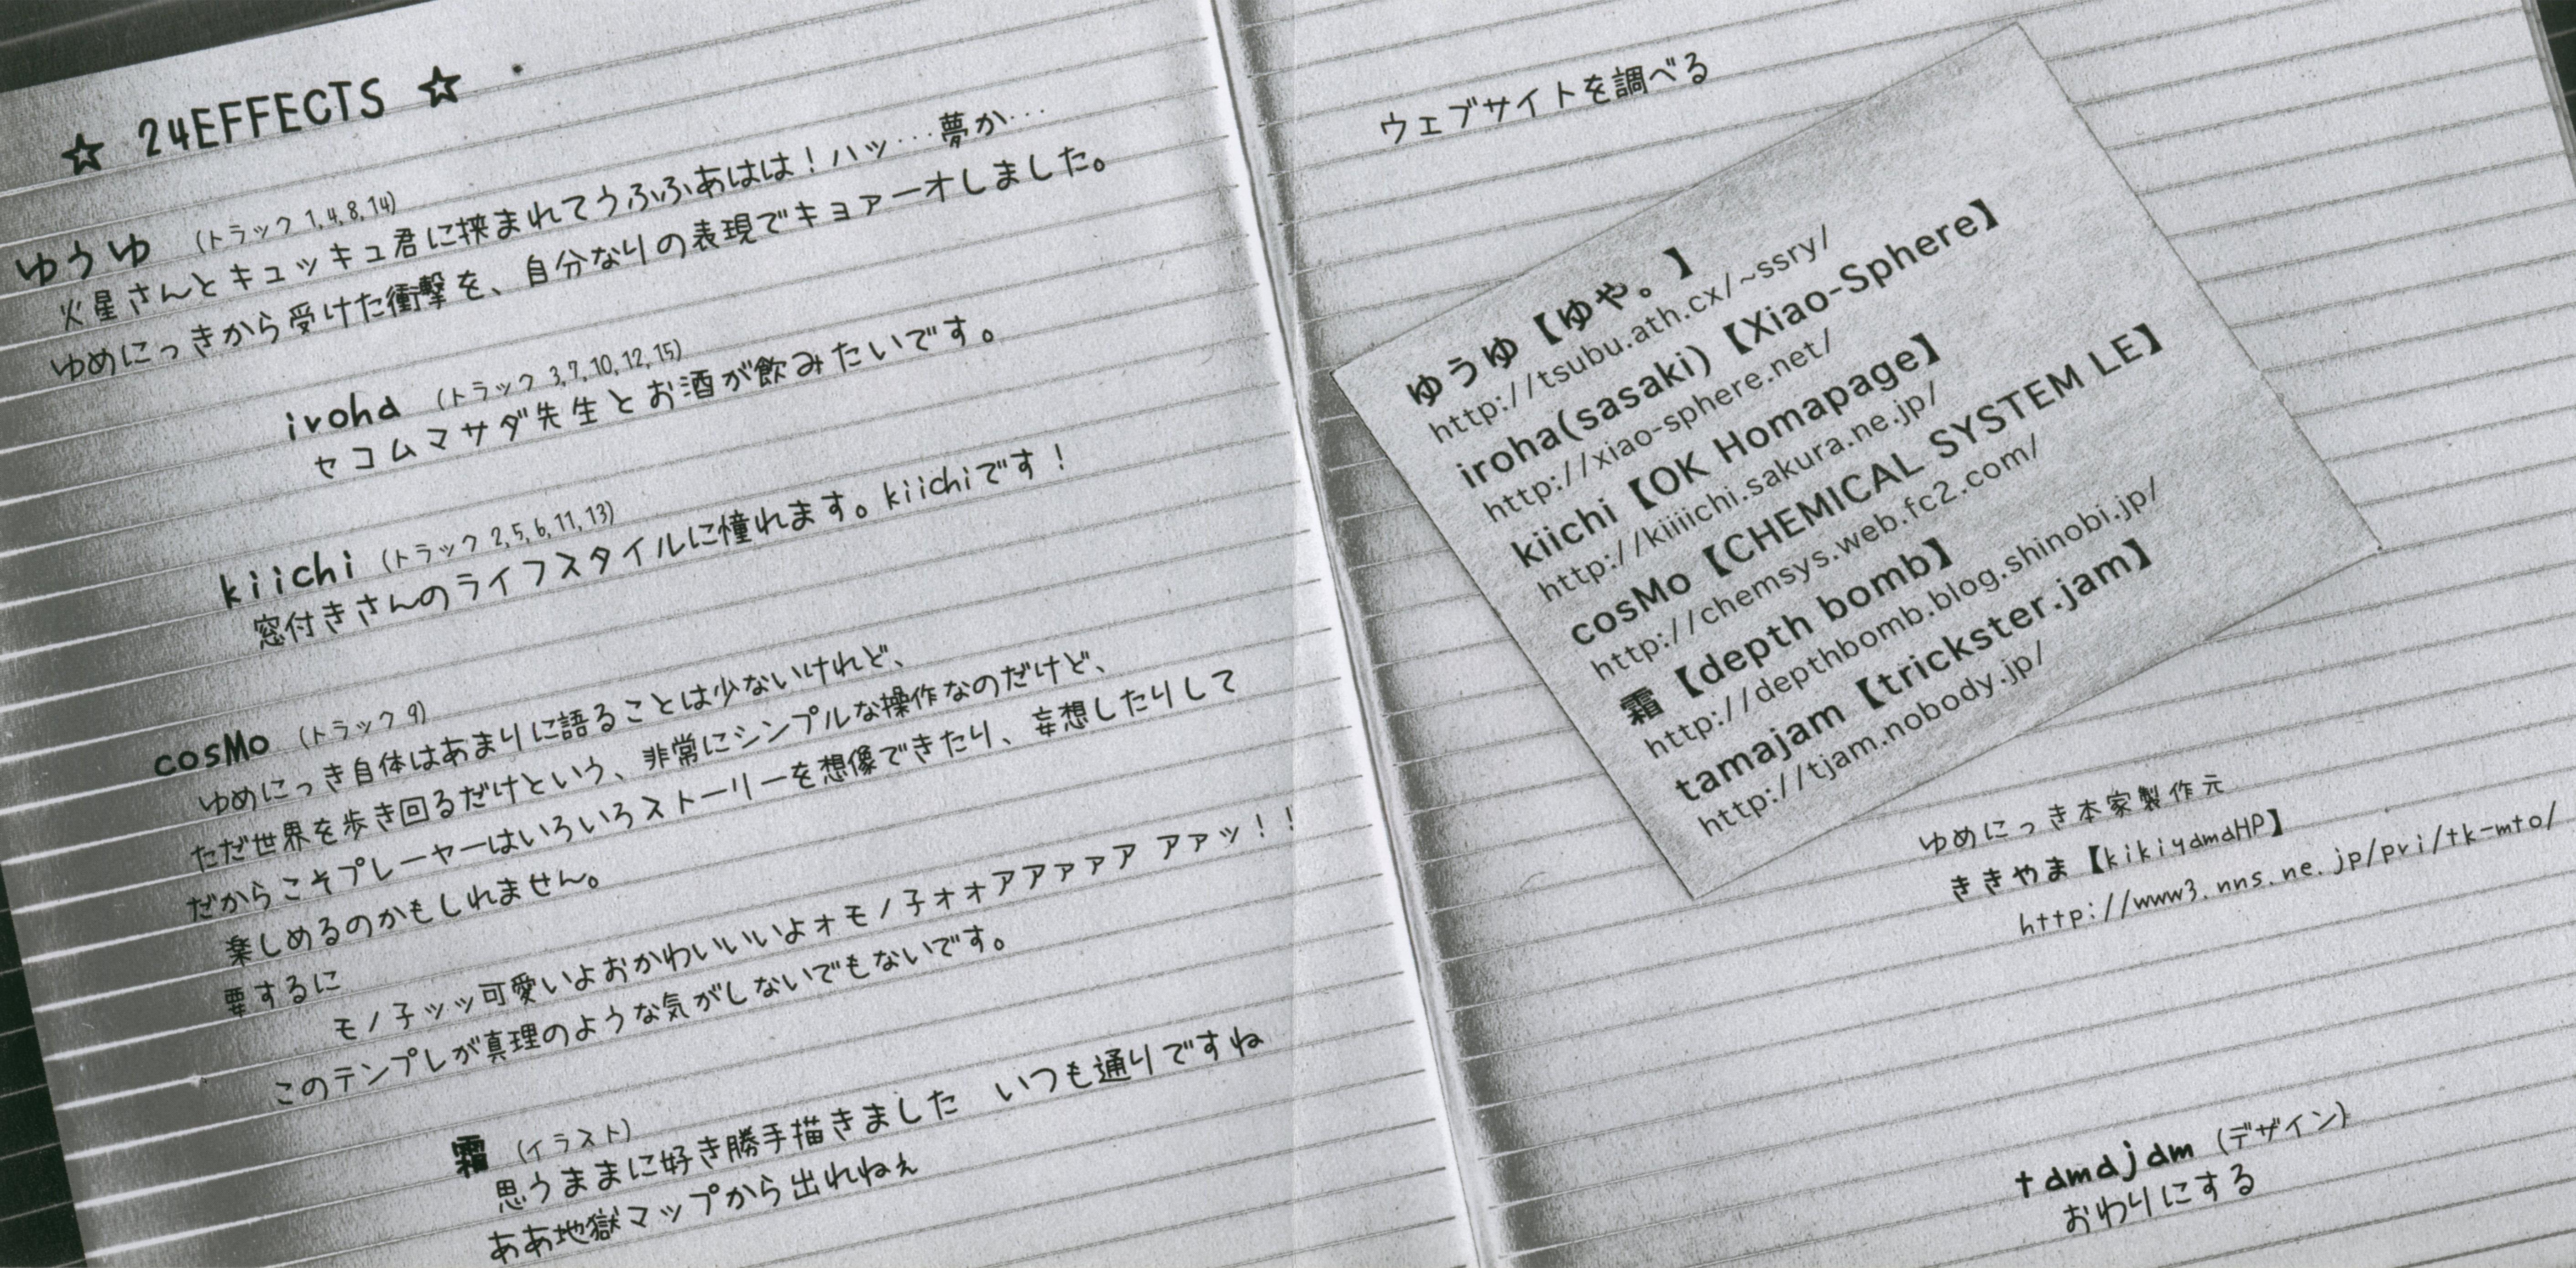 ☆ 24EFFECTS ☆
ゆうゆ (トラック 1,4,8,14)
火星さんとキュッキュ君に挟まれてうふふあはは！ハッ…夢か…
ゆめにっきから受けた衝撃を、自分なりの表現でキョァーオしました。
iroha (トラック 3,7,10,12,15)
セコムマサダ先生とお酒が飲みたいです。
kiichi (トラック 2,5,6,11,13)
窓付きさんのライフスタイルに憧れます。kiichiです！
cosMo (トラック9)
ゆめにっき自体はあまりに語ることは少ないけれど、
ただ世界を歩き回るだけという、非常にシンプルな操作なのだけど、
だからこそプレーヤーはいろいろストーリーを想像できたり、妄想したりして
楽しめるのかもしれません。
要するに
モノ子ッッ可愛いよおかわいいいよォモノ子ォォアアァァア アァッ！！
このテンプレが真理のような気がしないでもないです。
霜 (イラスト)
思うままに好き勝手描きました いつも通りですね
ああ地獄マップから出れねぇ
ウェブサイトを調べる
ゆうゆ【ゆや。】
http://tsubu.ath.cx/~ssry/
iroha(sasaki)【Xiao-Sphere】
http://xiao-sphere.net/
kiichi【OK Homapage】
http://kiiiichi.sakura.ne.jp/
cosMo【CHEMICAL SYSTEM LE】
http://chemsys.web.fc2.com/
霜【depth bomb】
http://depthbomb.blog.shinobi.jp/
tamajam【trickster.jam】
http://tjam.nobody.jp/
ゆめにっき本家製作元
ききやま【kikiyamaHP】
http://www3.nns.ne.jp/pri/tk-mto/
tamajam (デザイン)
おわりにする